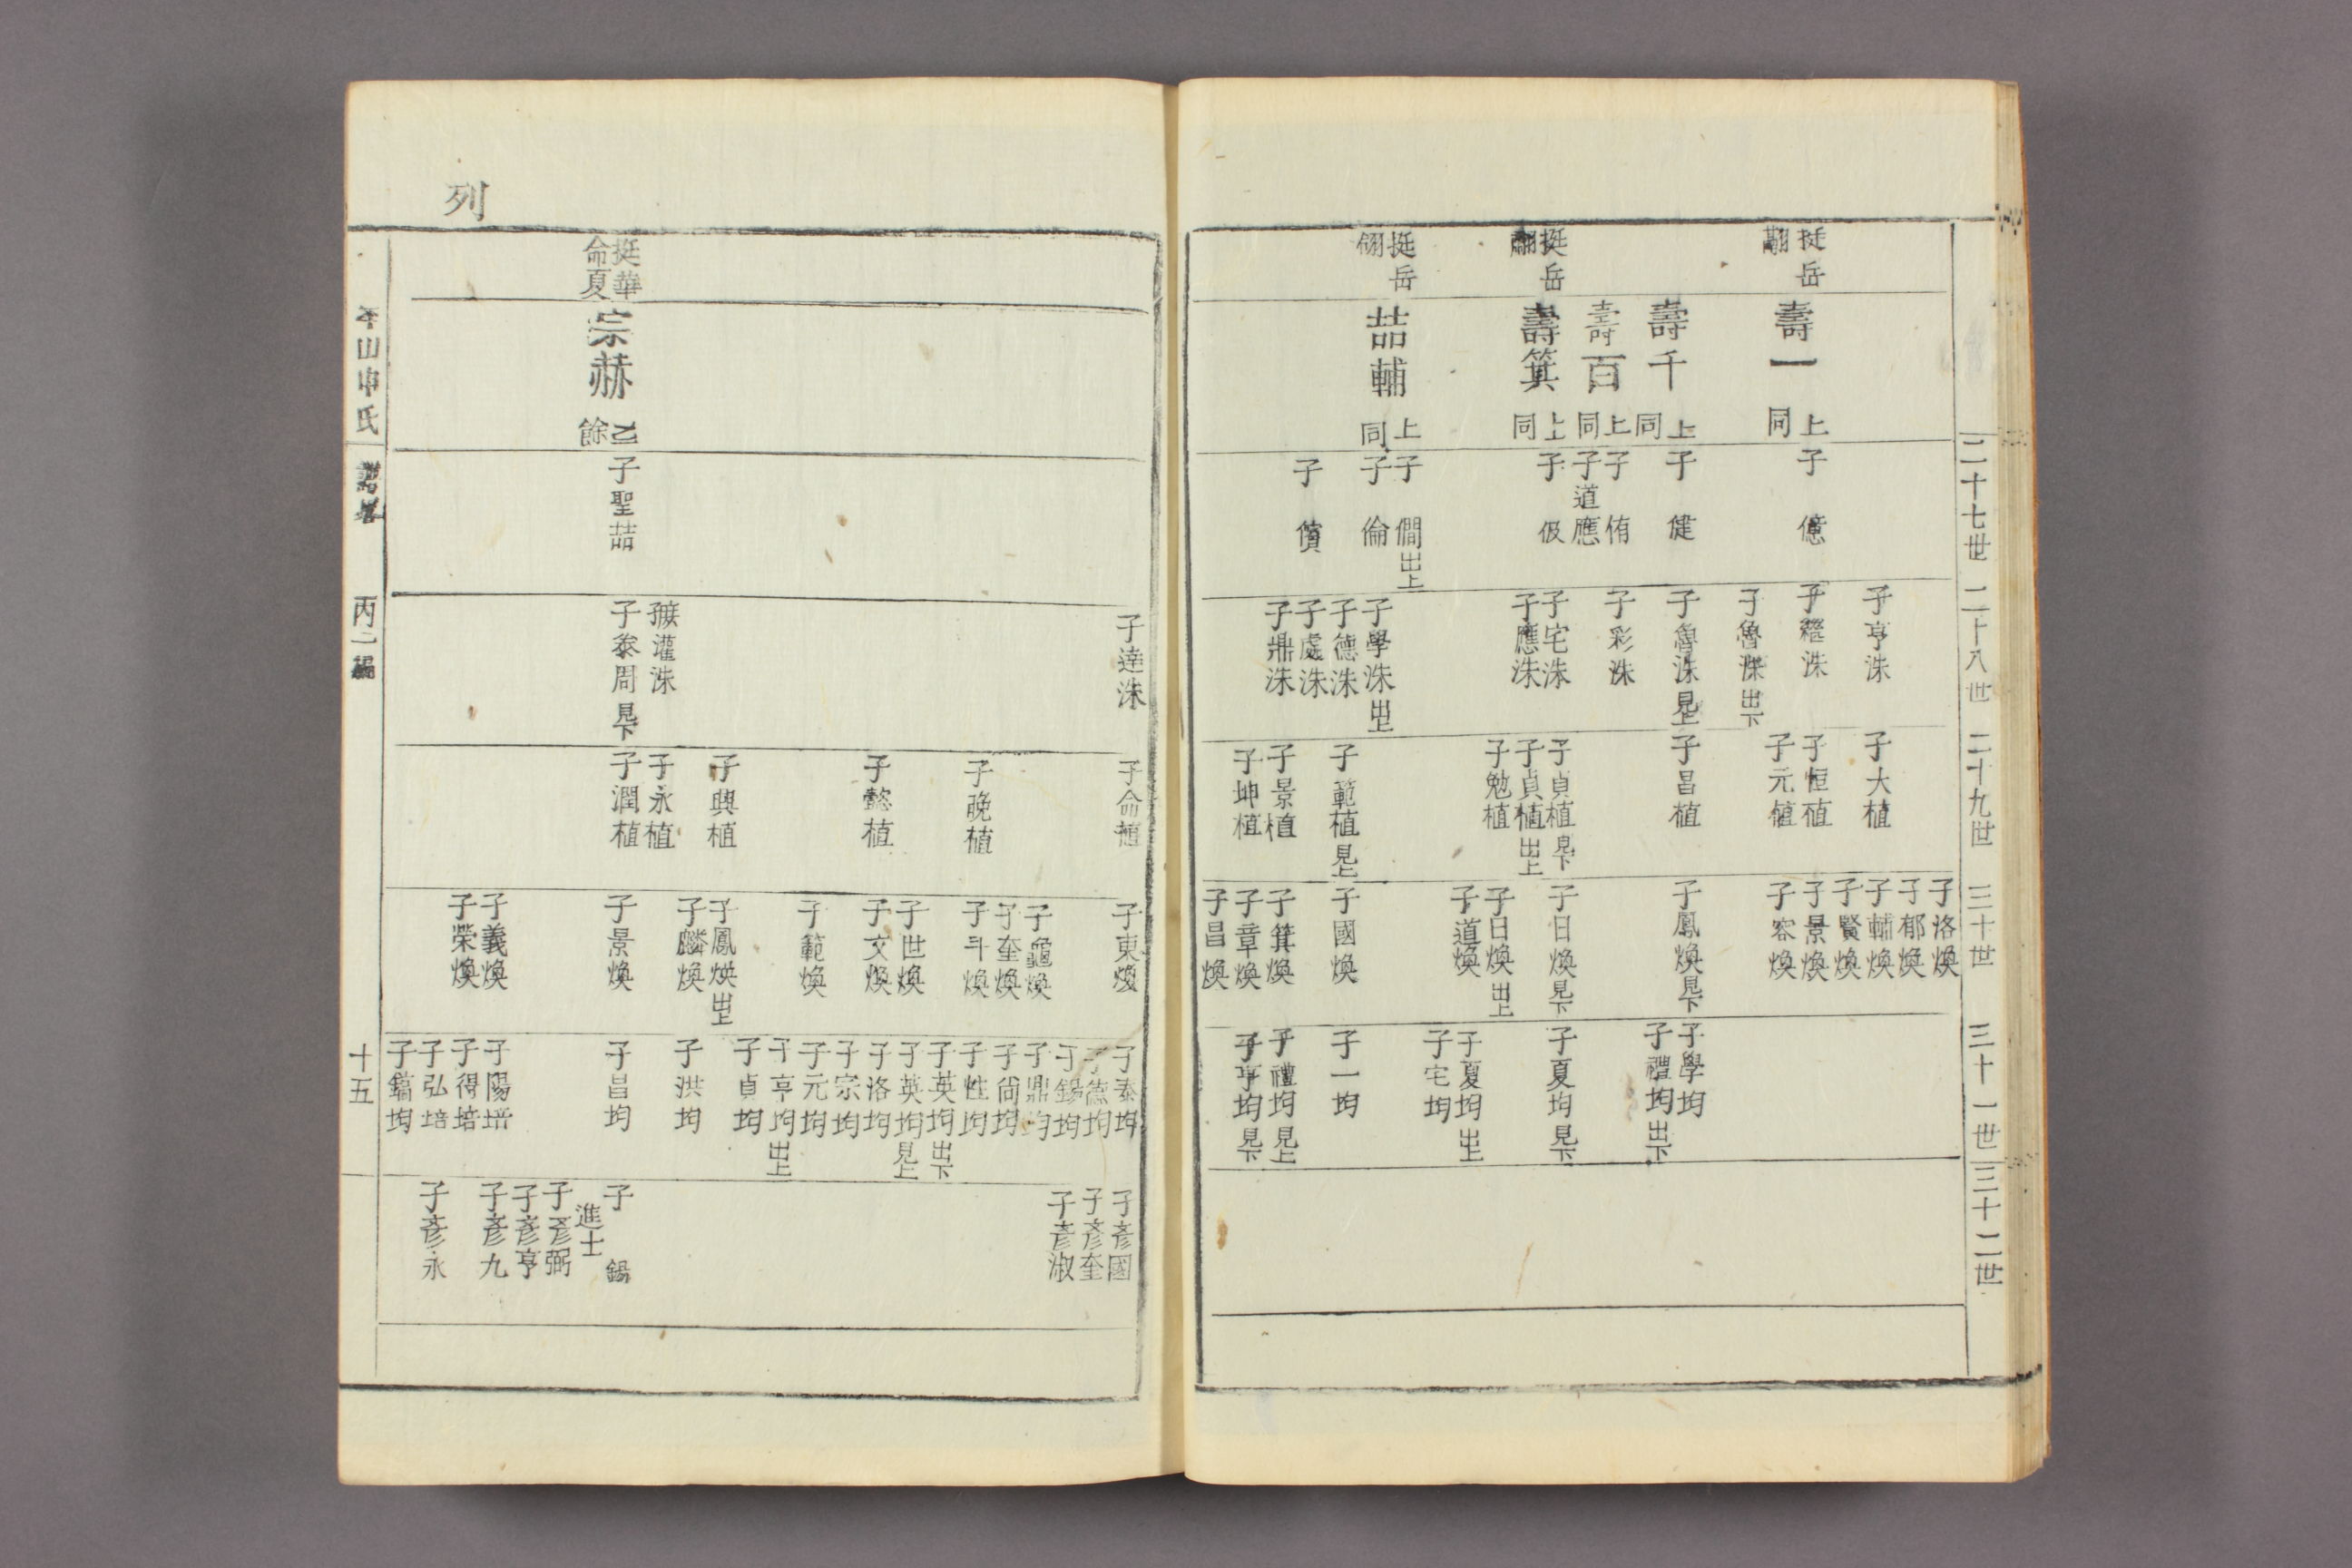 二十七世
二十八世
二十九世
三十世
三十一世
三十二世
挺岳
翻
挺岳
翻
挺岳
翎
壽一
上同
壽千
上同
壽百
上同
壽箕
上同
喆輔
上同
子億
子健
子侑
子道應
子伋
子僩出上
子倫
子儥
子亨洙
子繼洙
子魯洙出下
子魯洙見上
子彩洙
子宅洙
子應洙
子學洙出上
子德洙
子處洙
子鼎洙
子大植
子恒植
子元植
子昌植
子貞植見下
子貞植出上
子勉植
子範植見上
子景植
子坤植
子洛煥
子郁煥
子輔煥
子賢煥
子景煥
子容煥
子鳳煥見下
子日煥見下
子日煥出上
子道煥
子國煥
子箕煥
子章煥
子昌煥
子學均
子禮均出下
子夏均見下
子夏均出上
子宅均
子一均
子禮均見上
子亨均見下
列
挺華
命夏
宗赫
乙餘
子聖喆
子達洙
灌洙
子泰周見下
子命植
子晩植
子懿植
子興植
子永植
子潤植
子東煥
子龜煥
子奎煥
子斗煥
子世煥
子文煥
子範煥
子鳳煥出上
子麟煥
子景煥
子義煥
子榮煥
子泰均
子德均
子錫均
子鼎均
子尙均
子性均
子英均出下
子英均見上
子洛均
子宗均
子元均
子亨均出上
子貞均
子洪均
子昌均
子陽培
子得培
子弘培
子鎬均
子彥國
子彥奎
子彥淑
子錫
進士
子彥弼
子彥亨
子彥九
子彥永
平山申氏
譜畧
丙二編
十五